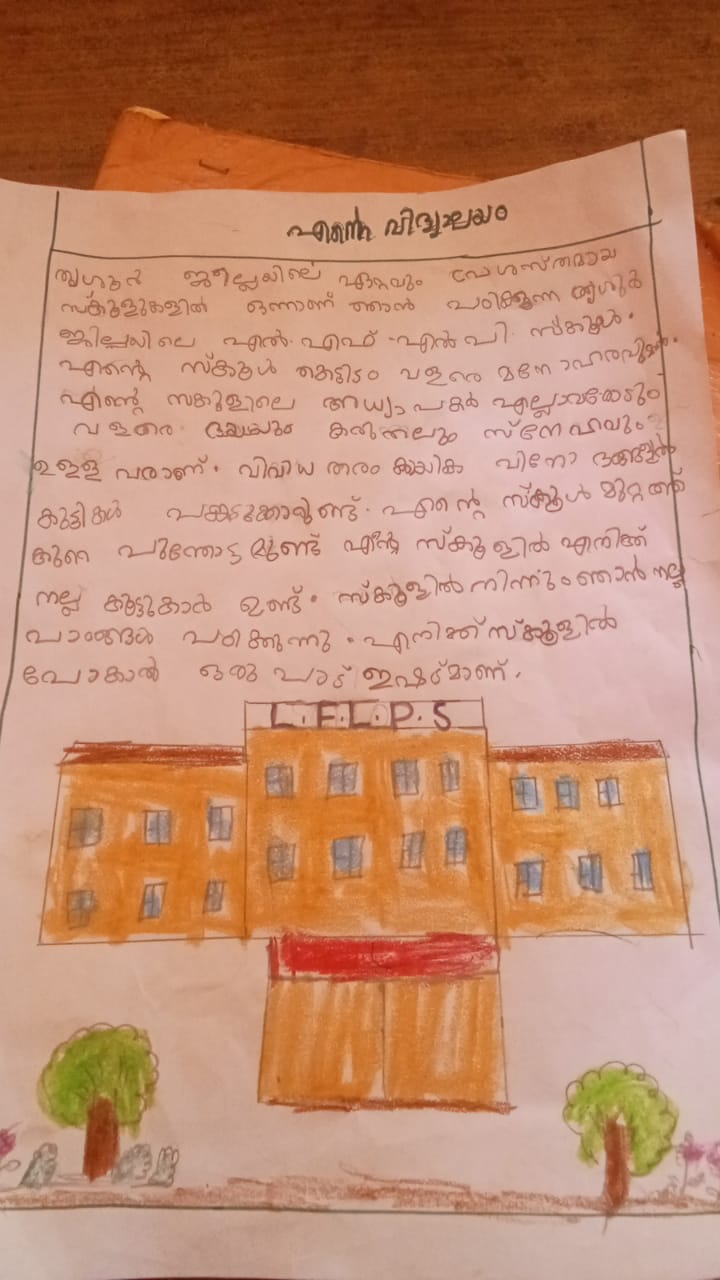 എന്റെ വിദ്യാലയം
തൃശൂർ ജില്ലയിലെ ഏറ്റവും പ്രശസ്തമായ
സ്കൂളുകളിൽ ഒന്നാണ് ഞാൻ പഠിക്കുന്ന തൃശൂർ
ജില്ലയിലെ എൽ.എഫ്.എൽ.പി. സ്കൂൾ.
എന്റെ സ്കൂൾ കെട്ടിടം വളരെ മനോഹരവുമാണ്.
എന്റെ സ്കൂളിലെ അധ്യാപകർ എല്ലാവരോടും
വളരെ ദയയും കരുതലും സ്നേഹവും
ഉള്ളവരാണ്. വിവിധ തരം കായിക വിനോദങ്ങളിൽ
കുട്ടികൾ പങ്കെടുക്കാറുണ്ട്. എന്റെ സ്കൂൾ മുറ്റത്ത്
കുറെ പൂന്തോട്ടമുണ്ട് എന്റെ സ്കൂളിൽ എനിക്ക്
നല്ല കൂട്ടുകാർ ഉണ്ട്. സ്കൂളിൽ നിന്നും ഞാൻ നല്ല
പാഠങ്ങൾ പഠിക്കുന്നു. എനിക്ക് സ്കൂളിൽ
പോകാൻ ഒരു പാട് ഇഷ്ട്മാണ്.
L.F.L.P.S